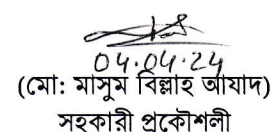 04.04.24
(মো: মাসুম বিল্লাহ আযাদ)
সহকারী প্রকৌশলী